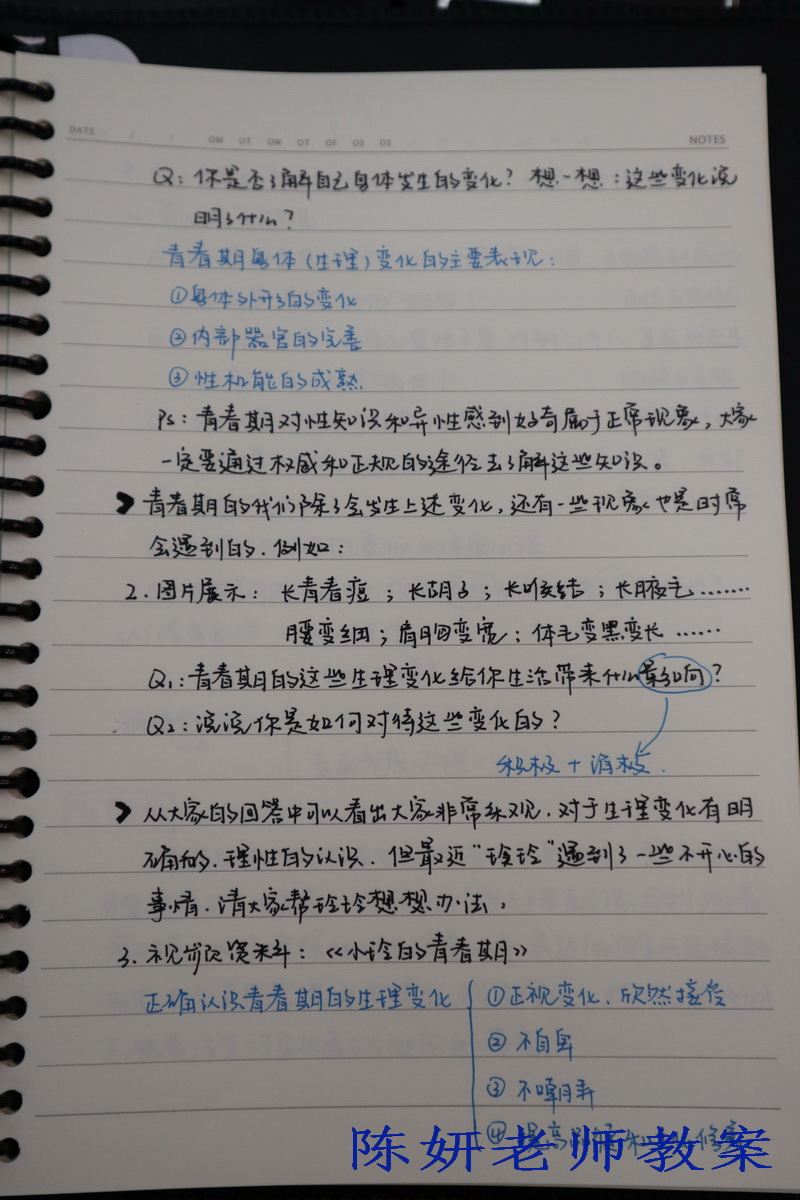 DATE / / OM OT OW OT OF OS OS NOTES
Q：你是否了解自己身体发生的变化？想一想：这些变化说
明了什么？
青春期身体（生理）变化的主要表现：
①身体外形的变化
②内部器官的完善
③性机能的成熟
Ps：青春期对性知识和异性感到好奇属于正常现象，大家
一定要通过权威和正规的途径去了解这些知识。
青春期的我们除了会发生上述变化，还有一些现象也是时常
会遇到的．例如：
2．图片展示：长青春痘；长胡子；长喉结；长腋毛……
腰变细；肩胸变宽；体毛变黑变长……
Q1：青春期的这些生理变化给你生活带来什么影响？
Q2：说说你是如何对待这些变化的？
积极＋消极．
从大家的回答中可以看出大家非常乐观．对于生理变化有明
确的、理性的认识．但最近“玲玲”遇到了一些不开心的
事情．请大家帮玲玲想想办法：
3．视频资料：《小玲的青春期》
正确认识青春期的生理变化
①正视变化、欣然接受
②不自卑
③不嘲弄
④提高
陈妍老师教案